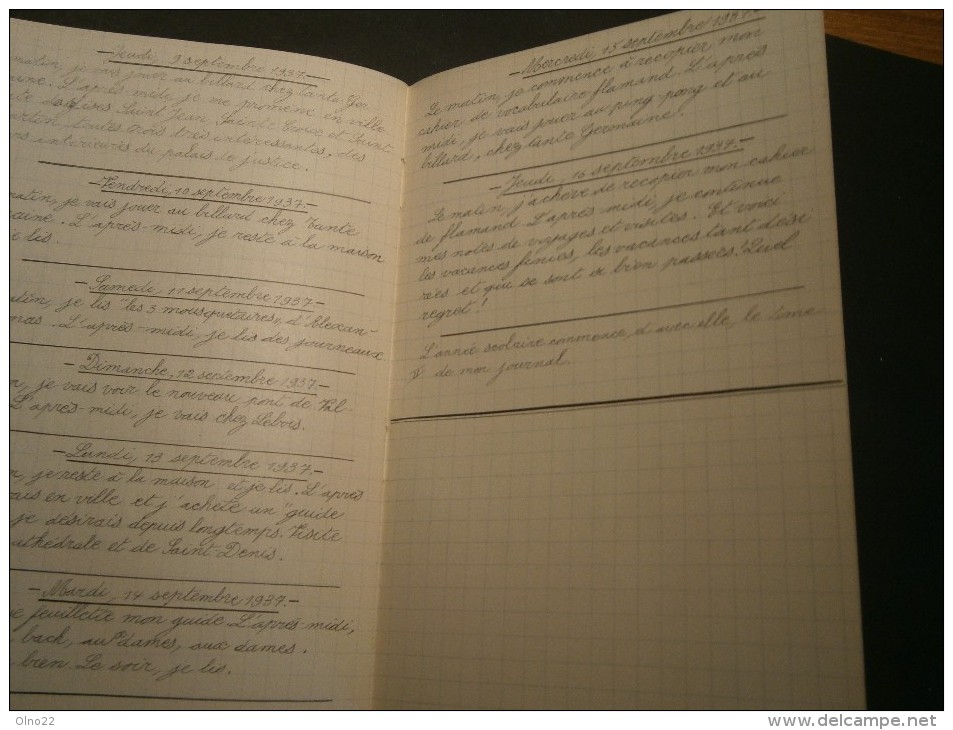 - Jeudi, 9 septembre 1937.-
matin, je vais jouer au billard chez Tante Ger-
maine. L'après-midi, je me promène en ville
églises Saint Jean, Sainte Croix et Saint
artin, toutes trois très intéressantes, des
intérieurs du palais de justice.
- Vendredi, 10 septembre 1937.-
matin, je vais jouer au billard chez Tante
aine. L'après-midi, je reste à la maison
e lis.
- Samedi, 11 septembre 1937.-
atin, je lis "les 3 mousquetaires", d'Alexan-
mas. L'après-midi, je lis des journeaux
- Dimanche, 12 septembre 1937.-
n, je vais voir le nouveau pont de Val-
L'après-midi, je vais chez Lebois.
- Lundi, 13 septembre 1937.-
n, je reste à la maison et je lis. L'après
vais en ville et j'achète un "guide
je désirais depuis longtemps. Visite
athédrale et de Saint Denis.
- Mardi, 14 septembre 1937.-
e feuillette mon guide. L'après-midi,
bach, aux dames, aux dames.
bien. Le soir, je lis.
- Mercredi, 15 septembre 1937.-
Le matin, je commence à recopier mon
cahier de vocabulaire flamand. L'après
midi, je vais jouer au ping-pong et au
billard, chez tante Germaine.
- Jeudi, 16 septembre 1937.-
Le matin, j'achève de recopier mon cahier
de flamand. L'après-midi, je continue
mes notes de voyages et visites. Et voici
les vacances finies, les vacances tant dési
rées et qui se sont si bien passées! Quel
regret!
L'année scolaire commence, et avec elle, le tome
V de mon journal.
Olno22
www.delcampe.net